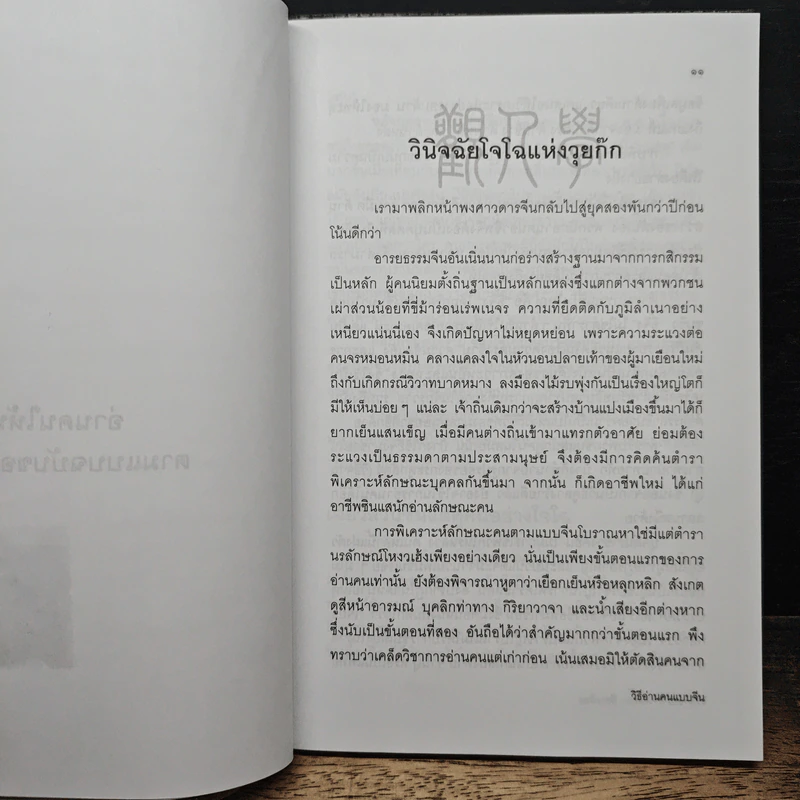 ๑๑
วินิจฉัยโจโฉแห่งวุยก๊ก
เรามาพลิกหน้าพงศาวดารจีนกลับไปสู่ยุคสองพันกว่าปีก่อน
โน้นดีกว่า
อารยธรรมจีนอันเนิ่นนานก่อร่างสร้างฐานมาจากการกสิกรรม
เป็นหลัก ผู้คนนิยมตั้งถิ่นฐานเป็นหลักแหล่งซึ่งแตกต่างจากพวกชน
เผ่าส่วนน้อยที่ขี่ม้าร่อนเร่พเนจร ความที่ยึดติดกับภูมิลำเนาอย่าง
เหนียวแน่นนี่เอง จึงเกิดปัญหาไม่หยุดหย่อน เพราะความระแวงต่อ
คนจรหมอนหมิ่น คลางแคลงใจในหัวนอนปลายเท้าของผู้มาเยือนใหม่
ถึงกับเกิดกรณีวิวาทบาดหมาง ลงมือลงไม้รบพุ่งกันเป็นเรื่องใหญ่โตก็
มีให้เห็นบ่อยๆ แน่ละ เจ้าถิ่นเดิมกว่าจะสร้างบ้านแปงเมืองขึ้นมาได้ก็
ยากเย็นแสนเข็ญ เมื่อมีคนต่างถิ่นเข้ามาแทรกตัวอาศัย ย่อมต้อง
ระแวงเป็นธรรมดาตามประสามนุษย์ จึงต้องมีการคิดค้นตำรา
พิเคราะห์ลักษณะบุคคลกันขึ้นมา จากนั้น ก็เกิดอาชีพใหม่ ได้แก่
อาชีพซินแสนักอ่านลักษณะคน
การพิเคราะห์ลักษณะคนตามแบบจีนโบราณหาใช่มีแต่ตำรา
นรลักษณ์โหงวเฮ้งเพียงอย่างเดียว นั่นเป็นเพียงขั้นตอนแรกของการ
อ่านคนเท่านั้น ยังต้องพิจารณาหูตาว่าเยือกเย็นหรือหลุกหลิก สังเกต
ดูสีหน้าอารมณ์ บุคลิกท่าทาง กิริยาวาจา และน้ำเสียงอีกต่างหาก
ซึ่งนับเป็นขั้นตอนที่สอง อันถือได้ว่าสำคัญมากกว่าขั้นตอนแรก พึง
ทราบว่าเคล็ดวิชาการอ่านคนแต่เก่าก่อน เน้นเสมอมิให้ตัดสินคนจาก
วิธีอ่านคนแบบจีน